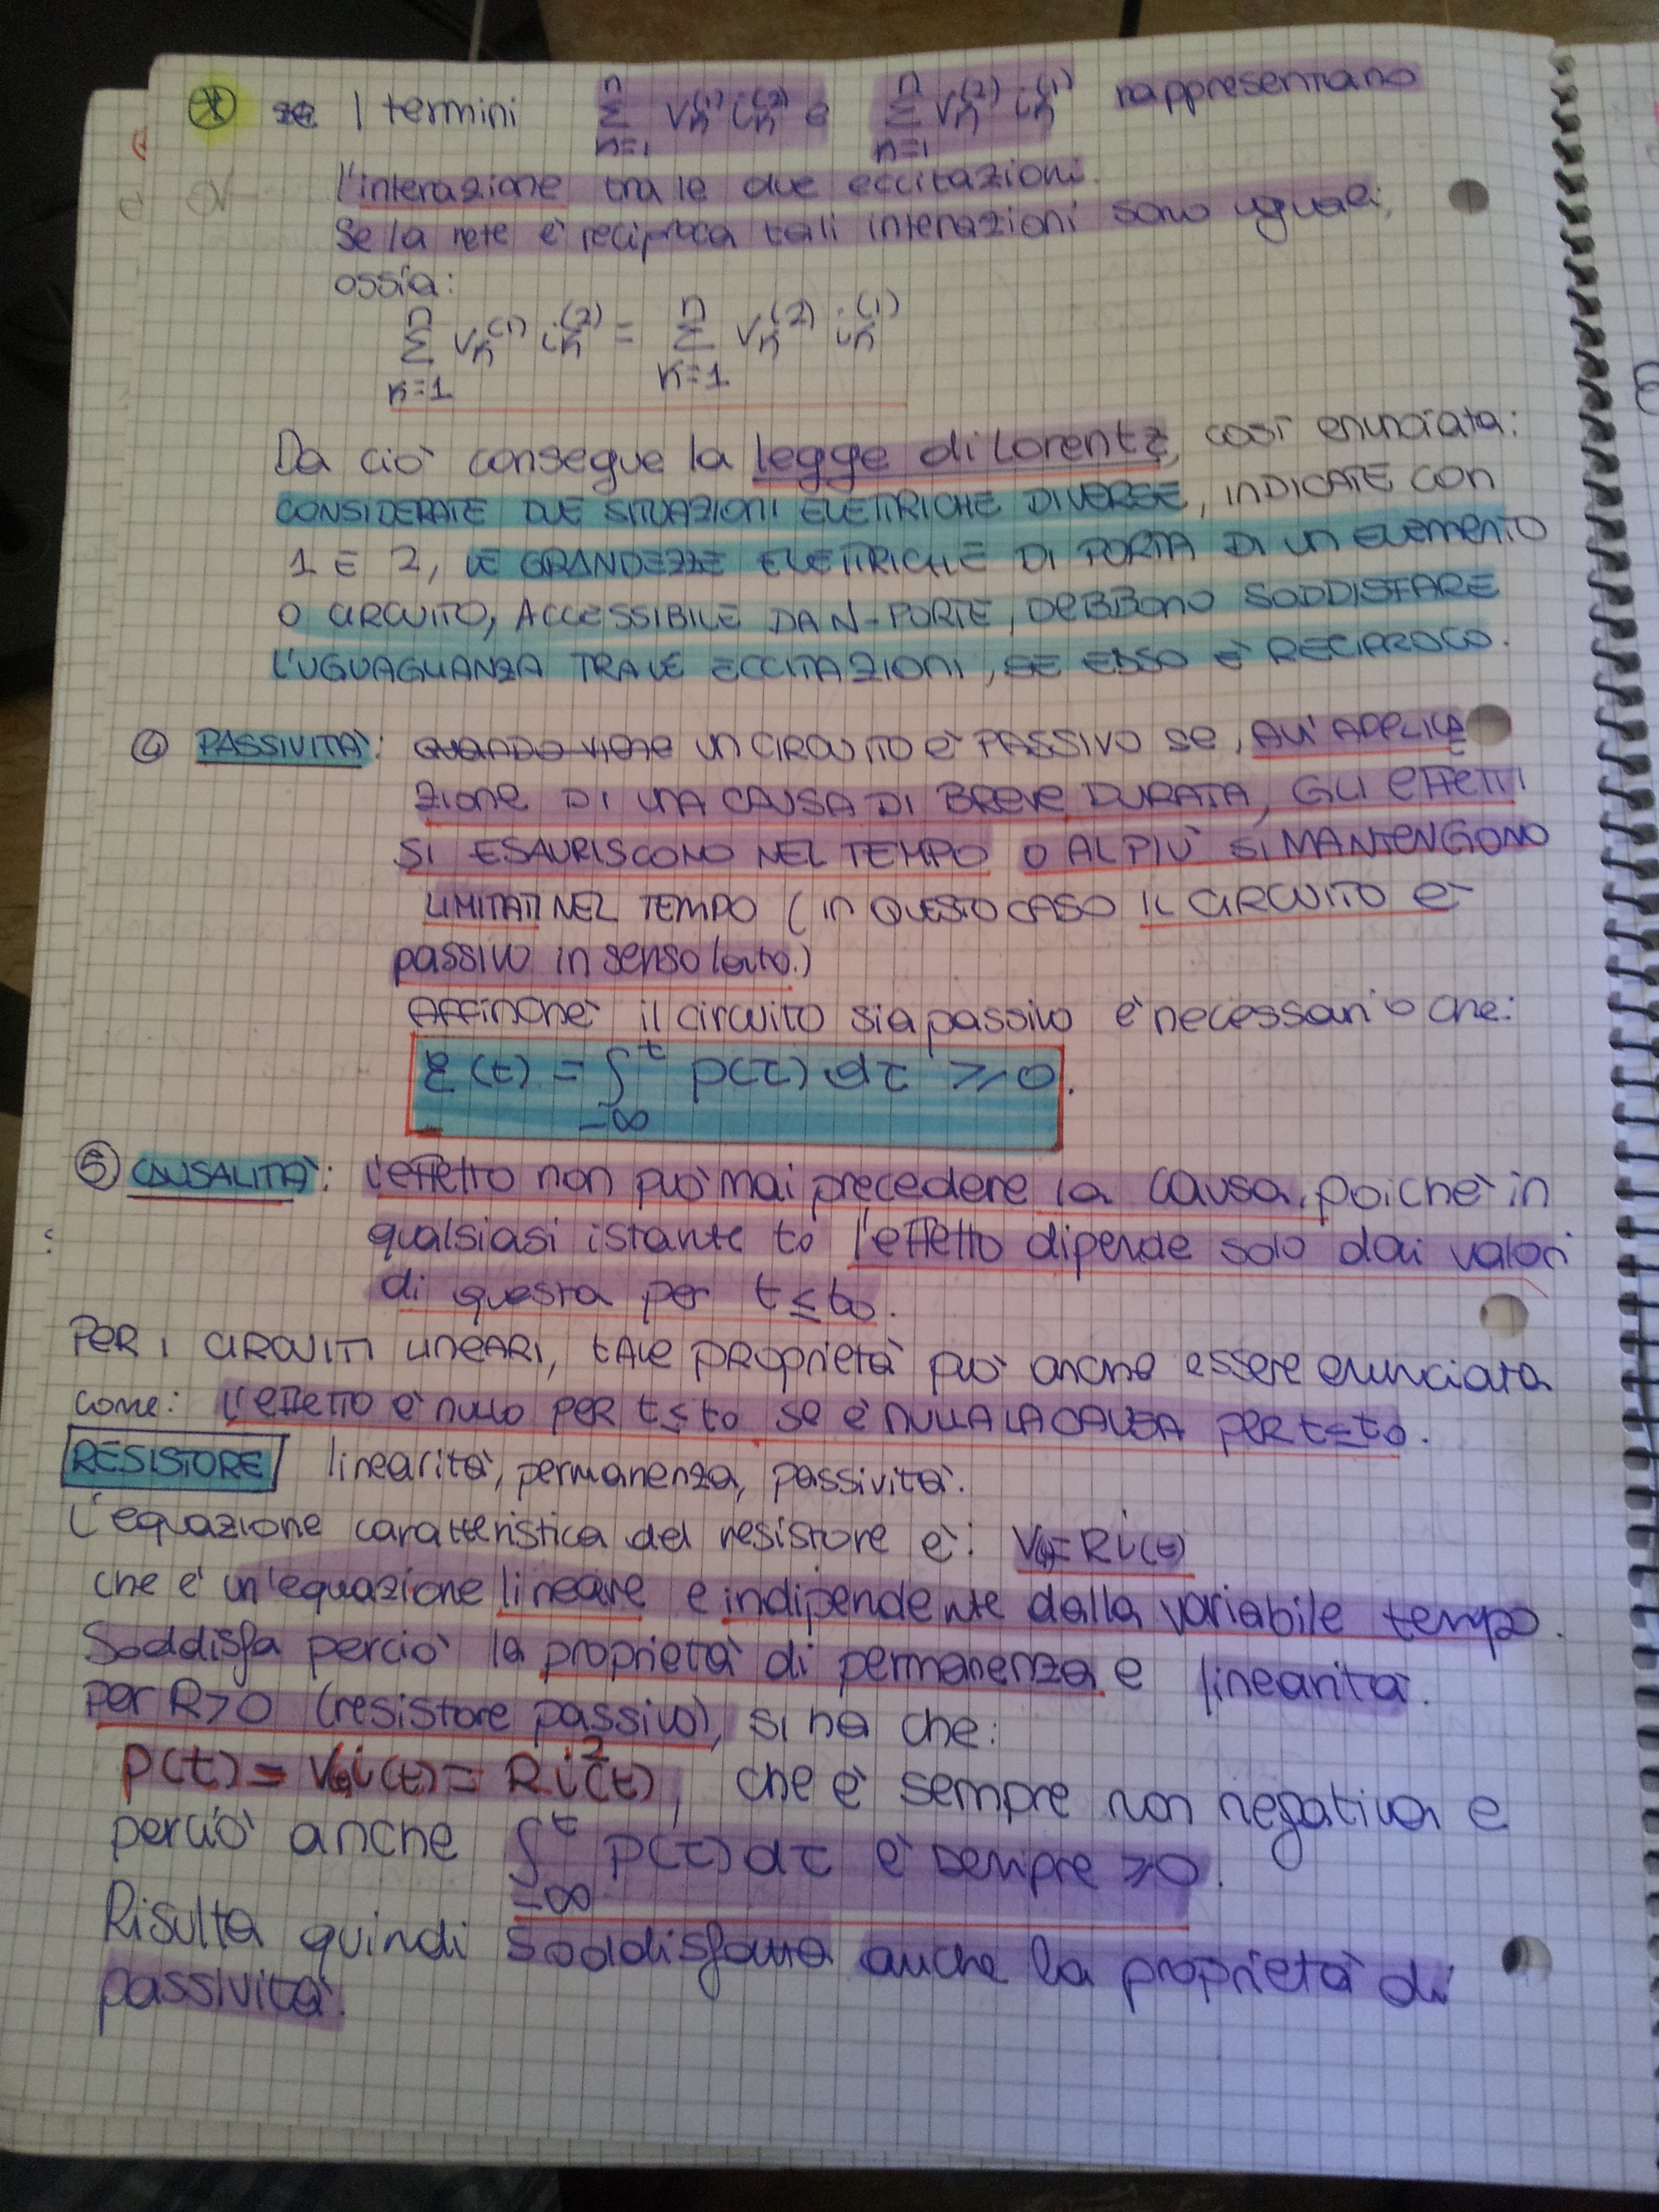 * se I termini Σ_{k=1}^{n} v_k^{(1)} i_k^{(2)} e Σ_{k=1}^{n} v_k^{(2)} i_k^{(1)} rappresentano
l'interazione tra le due eccitazioni.
Se la rete è reciproca tali interazioni sono uguali,
ossia:
Σ_{k=1}^{n} v_k^{(1)} i_k^{(2)} = Σ_{k=1}^{n} v_k^{(2)} i_k^{(1)}
Da ciò consegue la legge di Lorentz, così enunciata:
CONSIDERATE DUE SITUAZIONI ELETTRICHE DIVERSE, INDICATE CON
1 E 2, LE GRANDEZZE ELETTRICHE DI PORTA DI UN ELEMENTO
O CIRCUITO, ACCESSIBILE DA N-PORTE, DEBBONO SODDISFARE
L'UGUAGLIANZA TRA LE ECCITAZIONI, SE ESSO È RECIPROCO.
④ PASSIVITÀ: QUANDO VIENE UN CIRCUITO È PASSIVO se, ALL'APPLICA
ZIONE DI UNA CAUSA DI BREVE DURATA, GLI EFFETTI
SI ESAURISCONO NEL TEMPO O AL PIÙ SI MANTENGONO
LIMITATI NEL TEMPO (IN QUESTO CASO IL CIRCUITO È
passivo in senso lato.)
Affinché il circuito sia passivo è necessario che:
ℰ(t) = ∫_{-∞}^{t} p(τ) dτ ≥ 0.
⑤ CAUSALITÀ: l'effetto non può mai precedere la causa, poiché in
qualsiasi istante t₀ l'effetto dipende solo dai valori
di questa per t ≤ t₀.
PER I CIRCUITI LINEARI, TALE PROPRIETÀ può anche essere enunciata
come: l'effetto è nullo PER t ≤ t₀ se è NULLA LA CAUSA PER t ≤ t₀.
RESISTORE linearità, permanenza, passività.
L'equazione caratteristica del resistore è: V(t)=Ri(t)
che è un'equazione lineare e indipendente dalla variabile tempo.
Soddisfa perciò la proprietà di permanenza e linearità.
per R>0 (resistore passivo), si ha che:
p(t) = V(t)i(t) = Ri²(t), che è sempre non negativa e
perciò anche ∫_{-∞}^{t} p(τ)dτ è sempre ≥0.
Risulta quindi soddisfatta anche la proprietà di
passività.